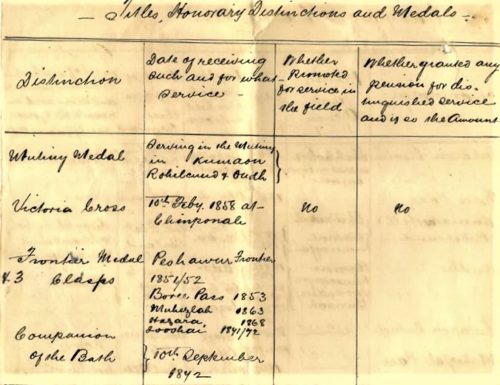 Titles, Honorary Distinctions and Medals
Distinction
Date of receiving such and for what service
Whether Promoted for service in the field
Whether granted any pension for distinguished service and if so the Amount
Mutiny Medal
Serving in the Mutiny
in Kumaon
Rohilcund & Oudh
Victoria Cross
10th Feby. 1858 at
Chinponale
No
No
Frontier Medal
& 3 Clasps
Peshawur Frontier
1851/52
Boree Pass 1853
1863
Hazara 1868
Looshai 1871/72
Companion
of the Bath
10th September
1872